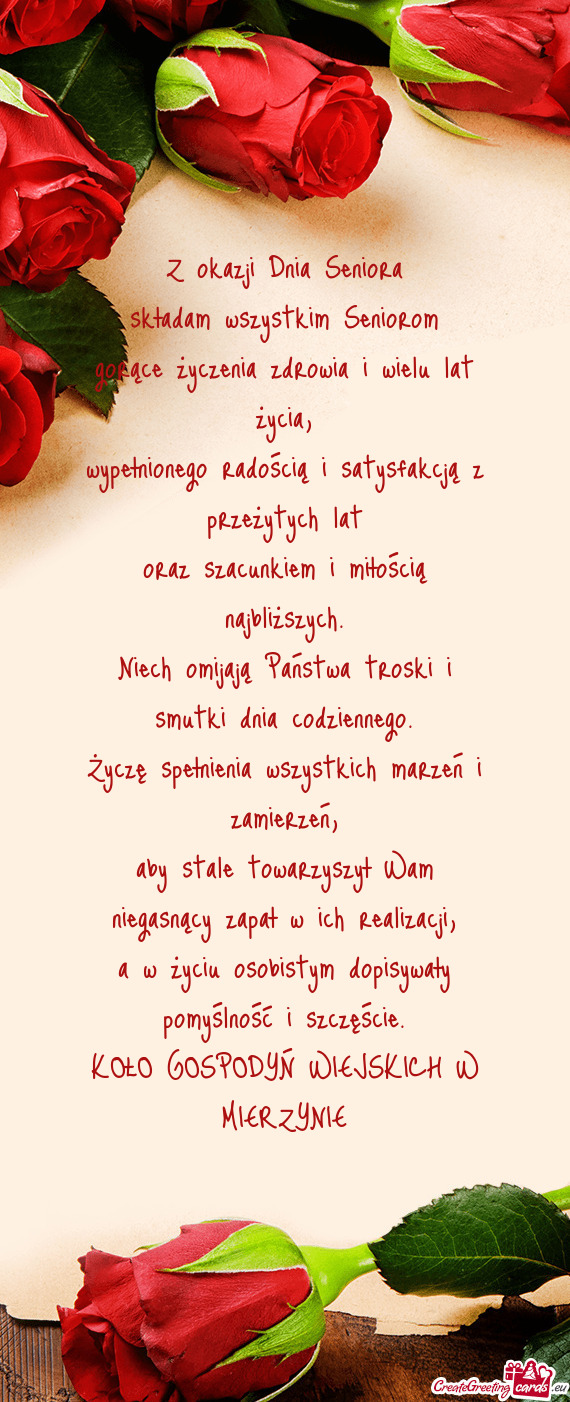 Z okazji Dnia Seniora
składam wszystkim Seniorom
gorące życzenia zdrowia i wielu lat
życia,
wypełnionego radością i satysfakcją z
przeżytych lat
oraz szacunkiem i miłością
najbliższych.
Niech omijają Państwa troski i
smutki dnia codziennego.
Życzę spełnienia wszystkich marzeń i
zamierzeń,
aby stale towarzyszył Wam
niegasnący zapał w ich realizacji,
a w życiu osobistym dopisywały
pomyślność i szczęście.
KOŁO GOSPODYŃ WIEJSKICH W
MIERZYNIE
CreateGreetingcards.eu